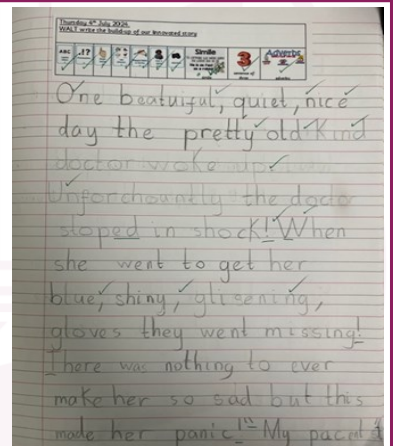 Thursday 4th July 2024
WALT write the build up of our innovated story
ABC .!? Simile 3 Adverbs
One beatuiful, quiet, nice
day the pretty old Kind
doctor woke up.
Unforchountly the docto
stoped in shock! When
she went to get her
blue, shiny, glisening,
gloves they went missing!
There was nothing to ever
make her so sad but this
made her panic! "My